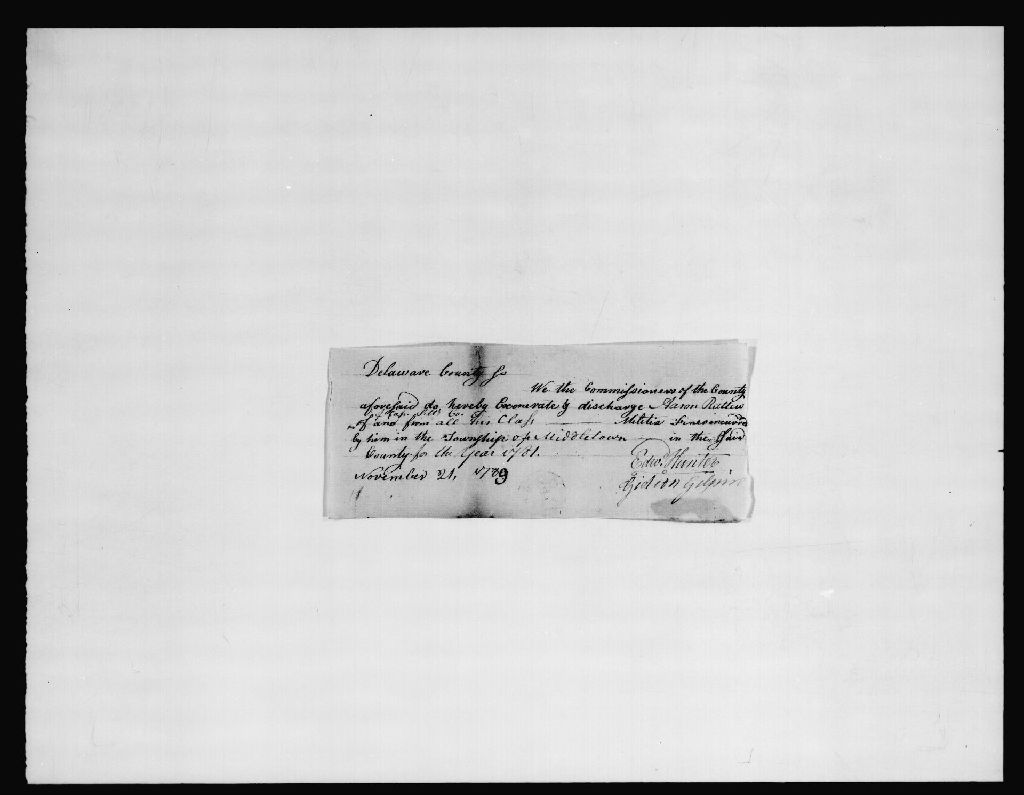 Delaware County Ss
We the Commissioners of the County
aforesaid do hereby Exonerate & discharge Aaron
of Capt. Co.
of and from all his Class Militia Fines incurred
by him in the Township of Middletown in the Said
County for the Year 1781.
Edwd. Hunter
November 21, 1789
Gideon Gilpin